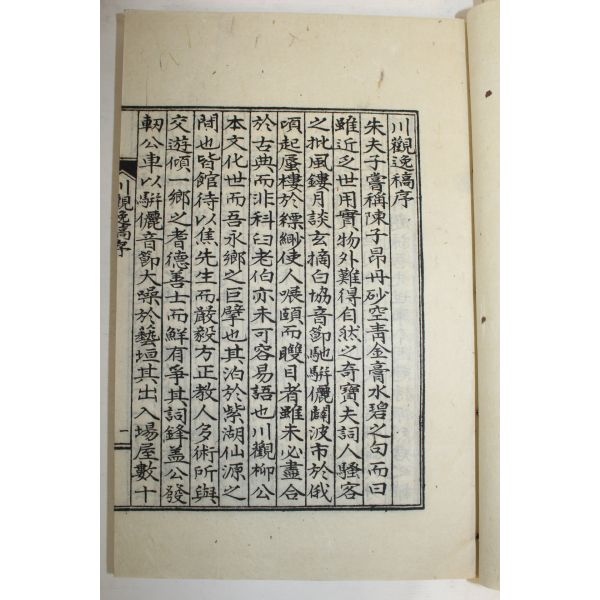 川觀逸稿序
朱夫子嘗稱陳子昂丹砂空靑金膏水碧之句而曰
雖近乏世用實物外難得自然之奇寶夫詞人騷客
之批風鏤月談玄摘白協音節馳騈儷闢波市於俄
頃起蜃樓於縹緲使人哫頤而瞠目者雖未必盡合
於古典而非科臼老伯亦未可容易語也川觀柳公
本文化世而吾永鄕之巨擘也其泊於紫湖仙源之
間也皆館待以焦先生而嚴毅方正敎人多術所與
交遊傾一鄕之耆德善士而鮮有爭其詞鋒盖公發
軔公車以騈儷音節大噪於藝垣其出入場屋數十
川觀逸稿序
一